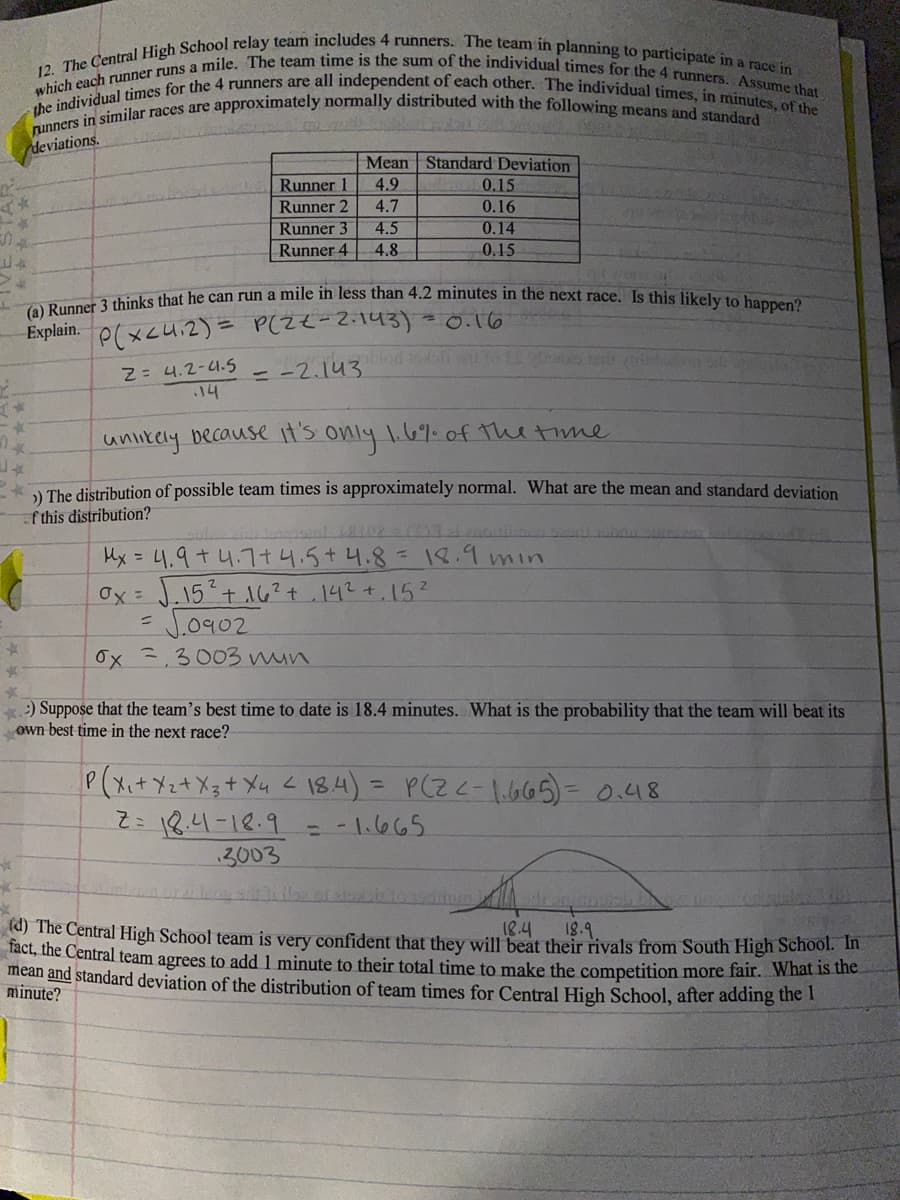 12. The Central High School relay team includes 4 runners. The team in planning to participate in a race in
which each runner runs a mile. The team time is the sum of the individual times for the 4 runners. Assume that
the individual times for the 4 runners are all independent of each other. The individual times, in minutes, of the
runners in similar races are approximately normally distributed with the following means and standard
deviations.
Mean Standard Deviation
Runner 1 4.9 0.15
Runner 2 4.7 0.16
Runner 3 4.5 0.14
Runner 4 4.8 0.15
(a) Runner 3 thinks that he can run a mile in less than 4.2 minutes in the next race. Is this likely to happen?
Explain. P(x<4.2) = P(Z<-2.143) = 0.16
Z = 4.2-4.5 = -2.143
.14
unlikely because it's only 1.6% of the time
) The distribution of possible team times is approximately normal. What are the mean and standard deviation
f this distribution?
μx = 4.9+4.7+4.5+4.8 = 18.9 min
σx = √.15²+.16²+.14²+.15²
= √.0902
σx = .3003 min
) Suppose that the team's best time to date is 18.4 minutes. What is the probability that the team will beat its
own best time in the next race?
P(X₁+X₂+X₃+X₄ < 18.4) = P(Z<-1.665) = 0.48
Z = 18.4-18.9 = -1.665
.3003
18.4 18.9
(d) The Central High School team is very confident that they will beat their rivals from South High School. In
fact, the Central team agrees to add 1 minute to their total time to make the competition more fair. What is the
mean and standard deviation of the distribution of team times for Central High School, after adding the 1
minute?